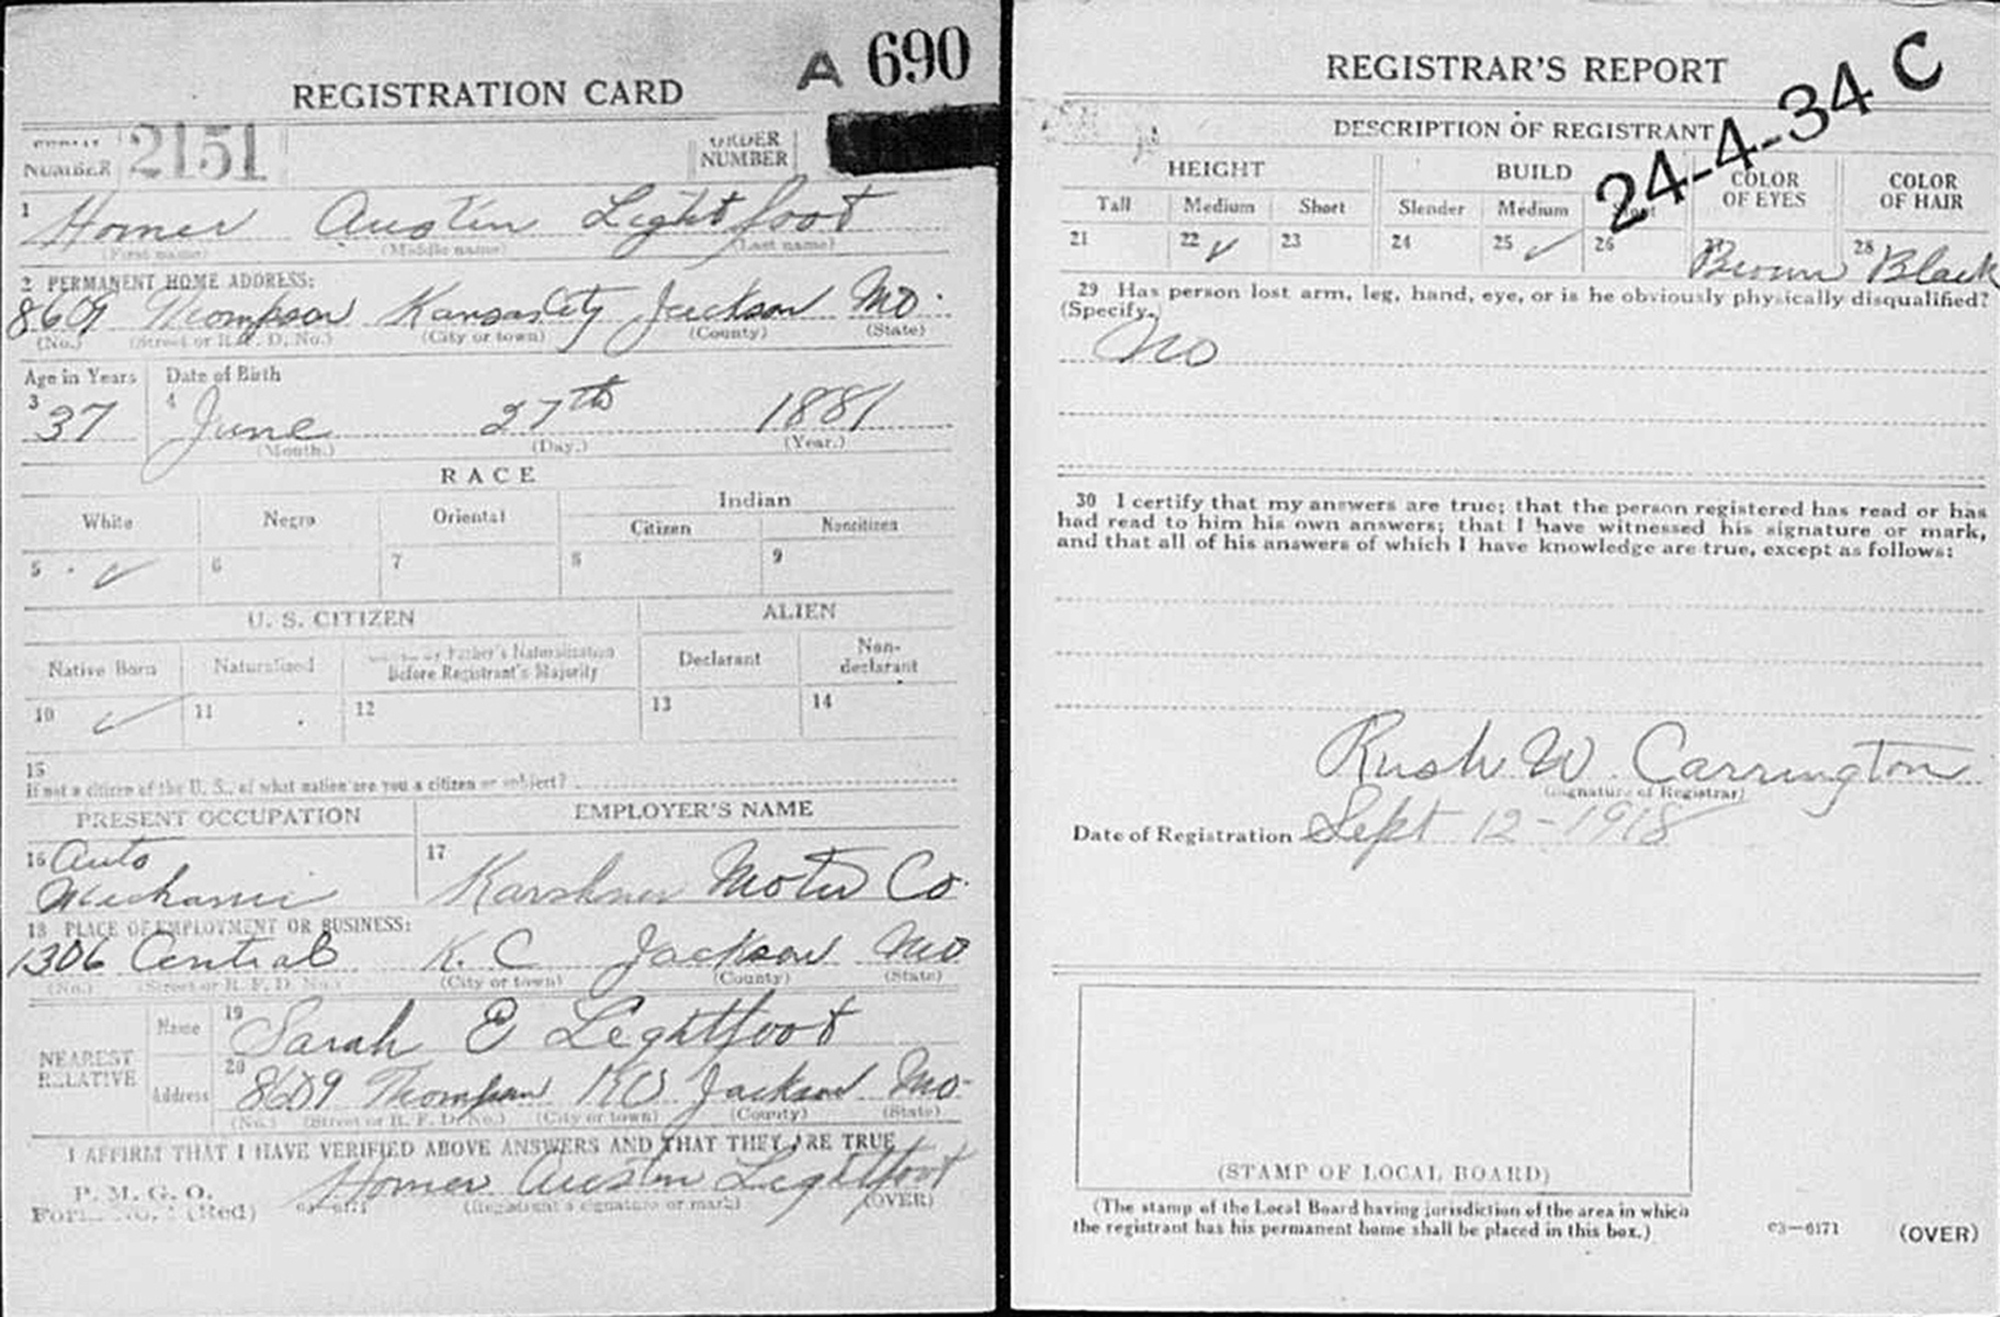 REGISTRATION CARD
A 690
NUMBER 2151
ORDER
NUMBER
1 Homer Austin Lightfoot
(First name) (Middle name) (Last name)
2 PERMANENT HOME ADDRESS:
8609 Thompson Kansas City Jackson Mo.
(No.) (Street or R. F. D. No.) (City or town) (County) (State)
Age in Years Date of Birth
3 37 4 June 27th 1881
(Month.) (Day.) (Year.)
RACE
White Negro Oriental Indian
Citizen Noncitizen
5 ✓ 6 7 8 9
U. S. CITIZEN ALIEN
Native Born Naturalized Father's Naturalization Before Registrant's Majority Declarant Non-declarant
10 ✓ 11 12 13 14
15
If not a citizen of the U. S., of what nation are you a citizen or subject?
PRESENT OCCUPATION EMPLOYER'S NAME
16 Auto
Mechanic 17 Karshner Motor Co.
18 PLACE OF EMPLOYMENT OR BUSINESS:
1306 Central K. C Jackson Mo
(No.) (Street or R. F. D. No.) (City or town) (County) (State)
NEAREST RELATIVE
Name 19 Sarah E Lightfoot
Address 20 8609 Thompson KC Jackson Mo-
(No.) (Street or R. F. D. No.) (City or town) (County) (State)
I AFFIRM THAT I HAVE VERIFIED ABOVE ANSWERS AND THAT THEY ARE TRUE
P. M. G. O.
Form No. 1 (Red) 03—6171 Homer Austin Lightfoot
(Registrant's signature or mark) (OVER)
REGISTRAR'S REPORT
24-4-34 C
DESCRIPTION OF REGISTRANT
HEIGHT BUILD COLOR OF EYES COLOR OF HAIR
Tall Medium Short Slender Medium Stout
21 22 ✓ 23 24 25 ✓ 26 27 Brown 28 Black
29 Has person lost arm, leg, hand, eye, or is he obviously physically disqualified?
(Specify.)
No
30 I certify that my answers are true; that the person registered has read or has
had read to him his own answers; that I have witnessed his signature or mark,
and that all of his answers of which I have knowledge are true, except as follows:
Rush W. Carrington
(Signature of Registrar)
Date of Registration Sept 12-1918
(STAMP OF LOCAL BOARD)
(The stamp of the Local Board having jurisdiction of the area in which
the registrant has his permanent home shall be placed in this box.)
03—6171 (OVER)